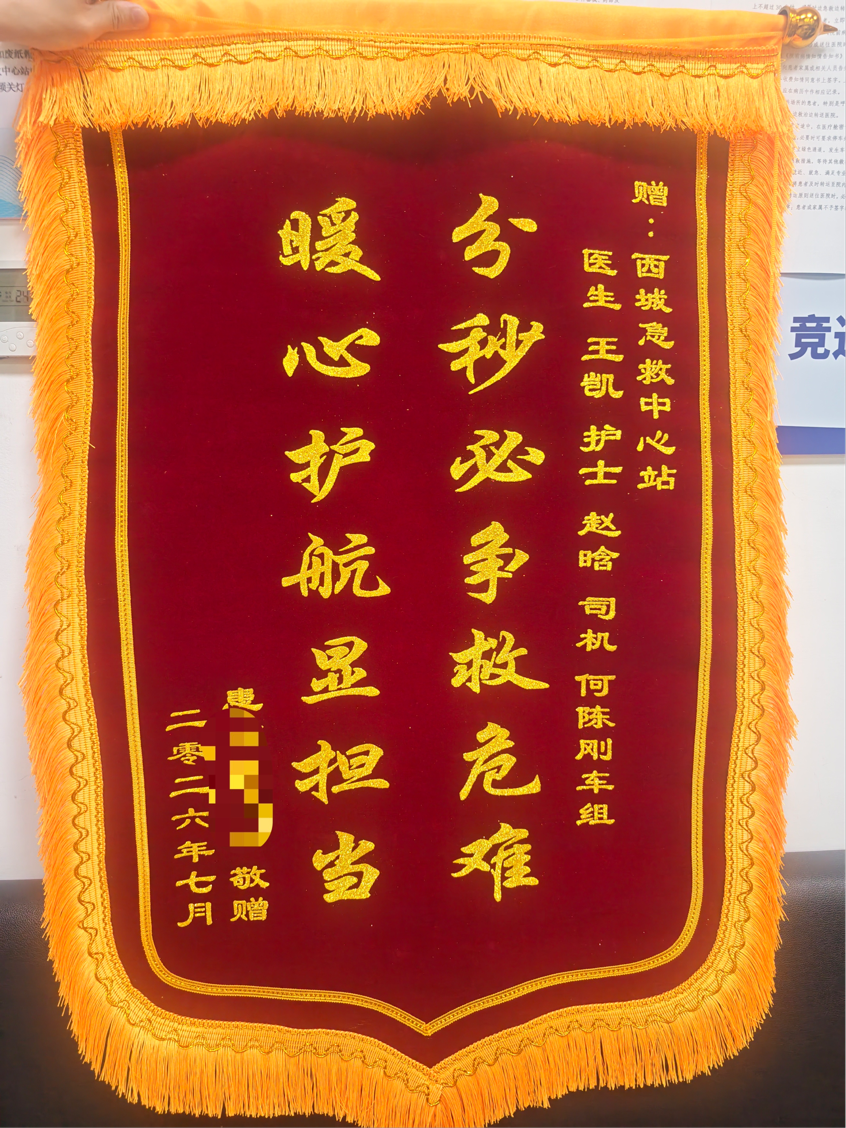 赠：西城急救中心站
医生 王凯 护士 赵晗 司机 何陈刚车组
分秒必争救危难
暖心护航显担当
患 敬赠
二零二六年七月
竞